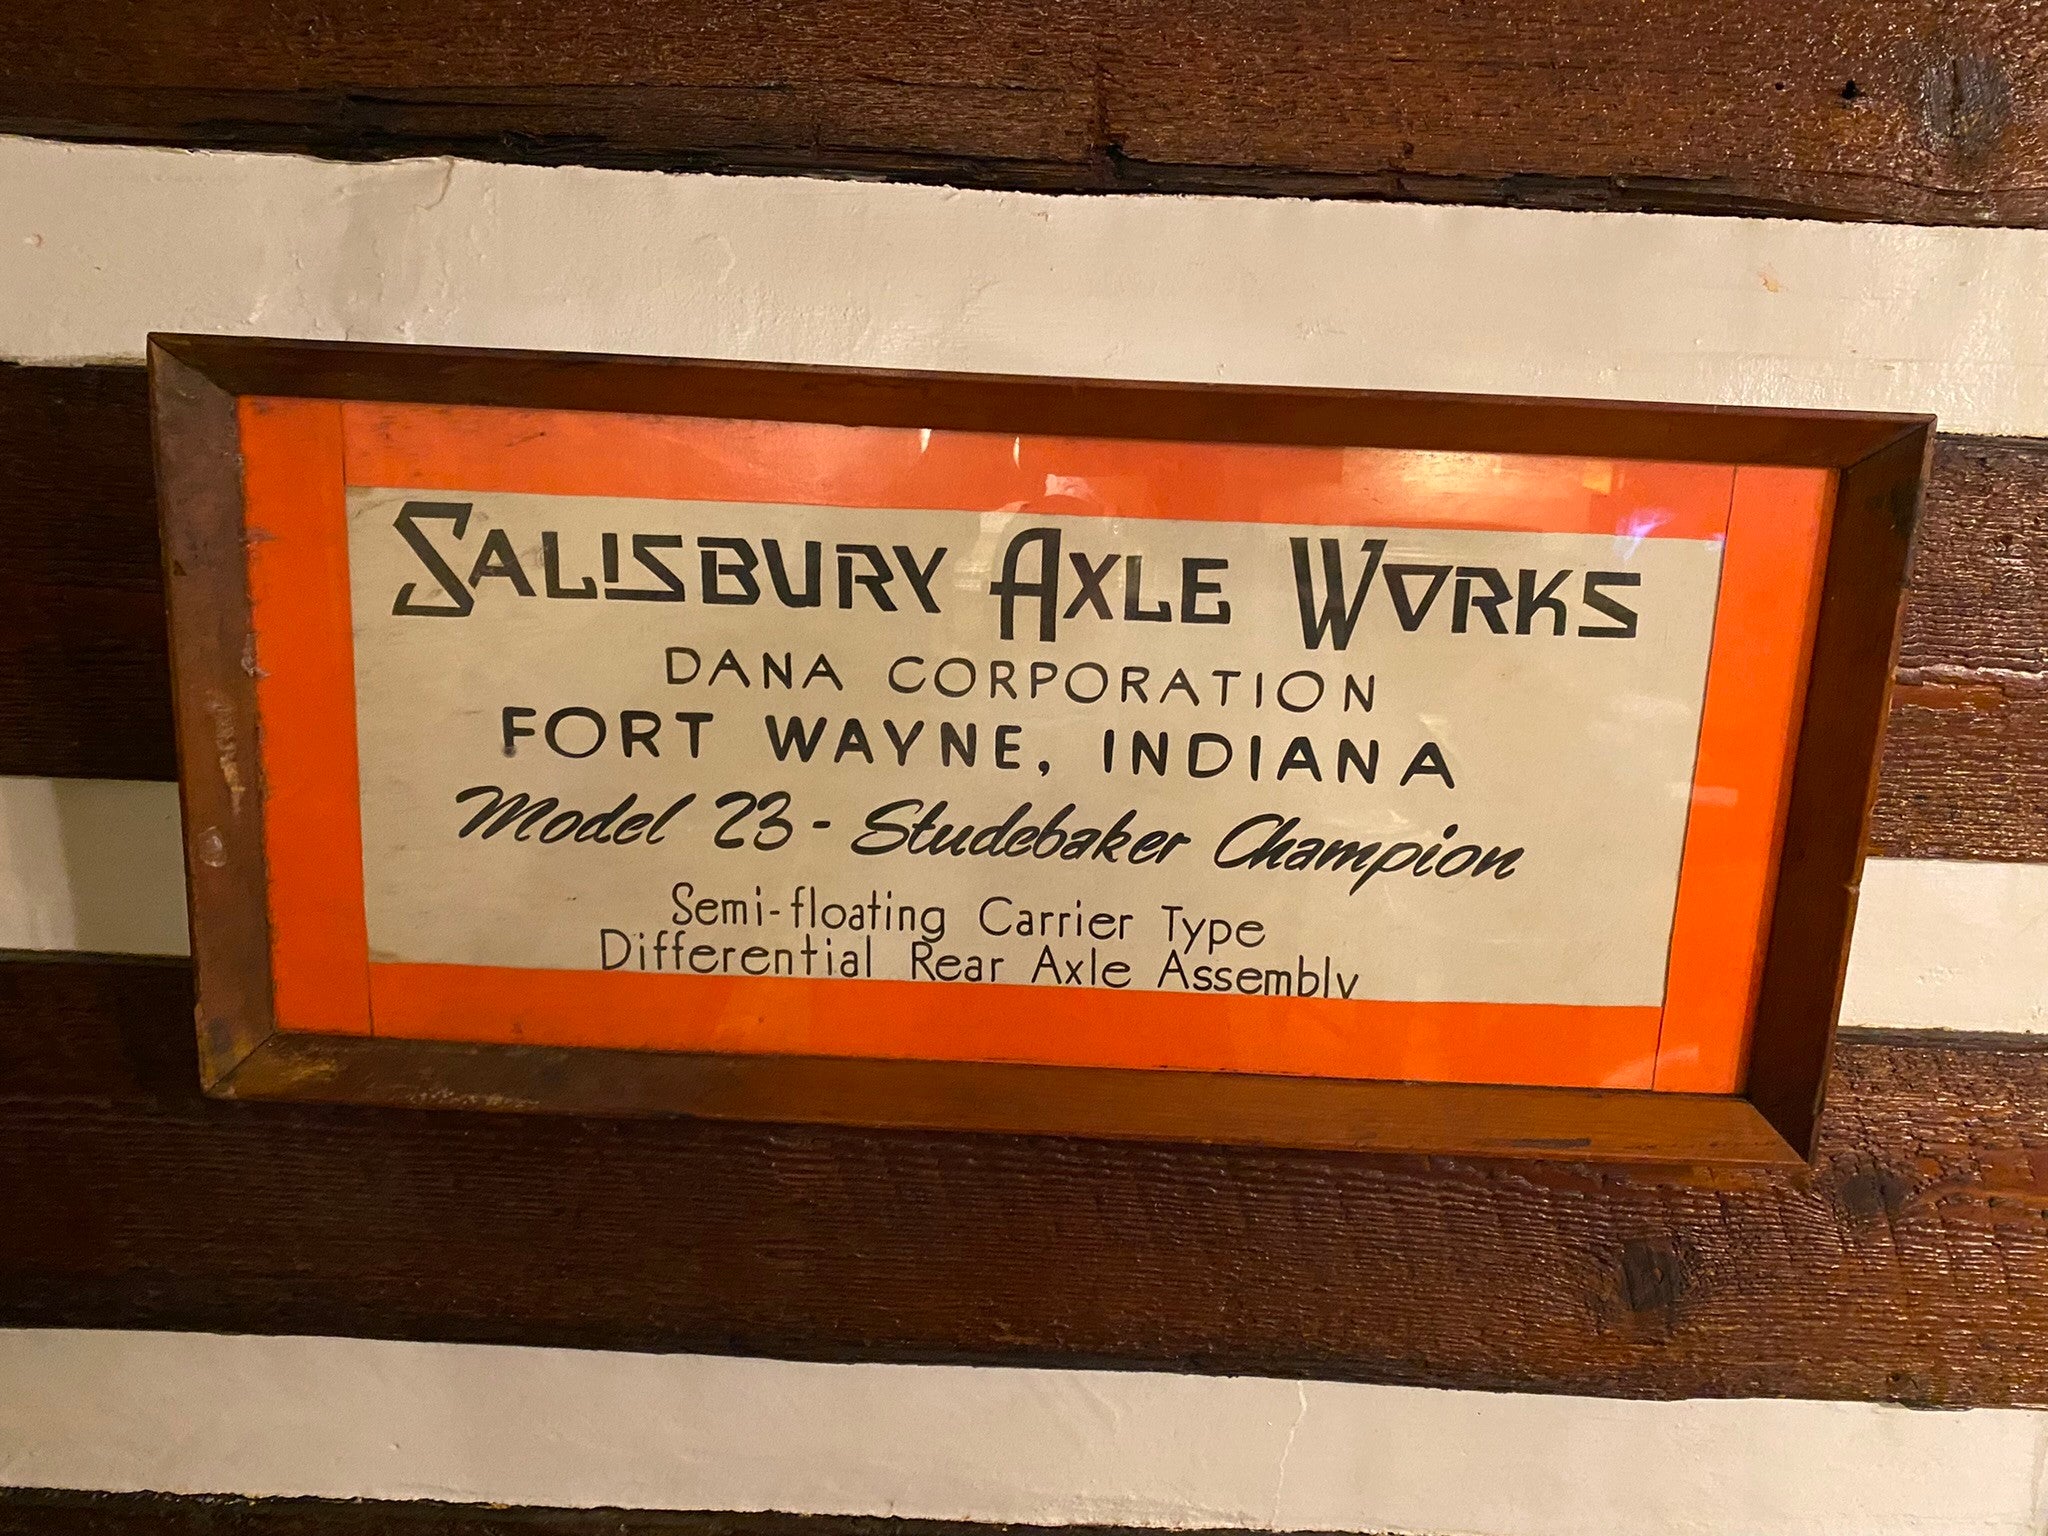 SALISBURY AXLE WORKS
DANA CORPORATION
FORT WAYNE, INDIANA
Model 23 - Studebaker Champion
Semi-floating Carrier Type
Differential Rear Axle Assembly